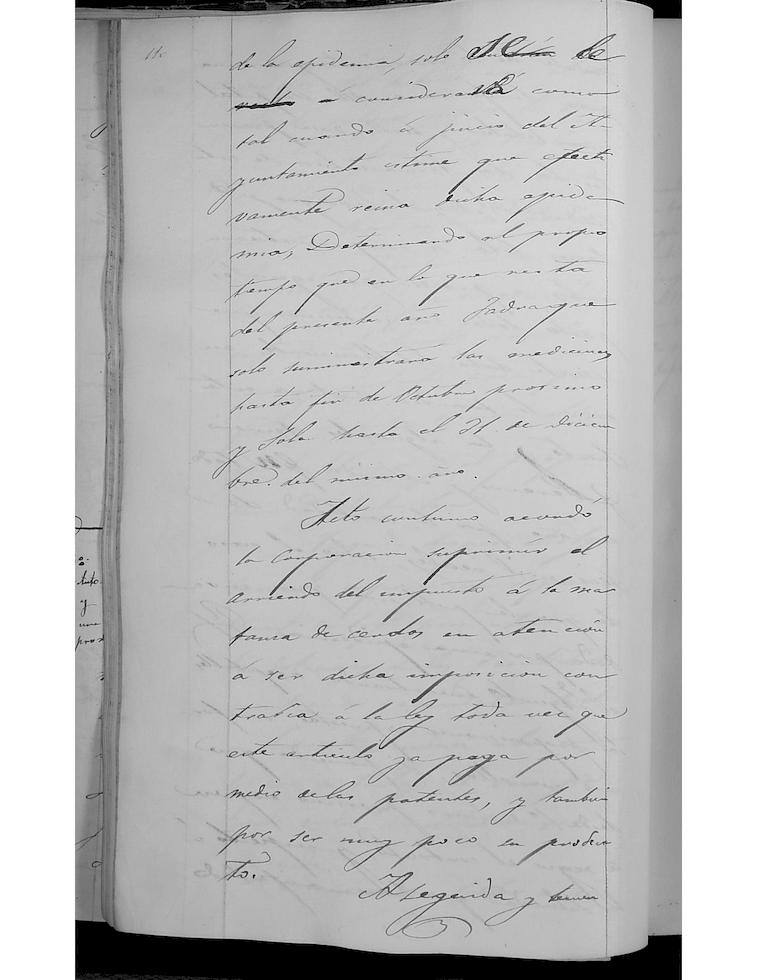 de la epidemia, solo se le
considerará como
tal cuando á juicio del A-
yuntamiento estime que efecti
vamente reina dicha epide-
mia, Determinando al propio
tiempo que en lo que resta
del presente año Jadraque
solo suministrará las medicinas
hasta fin de Octubre procsimo
y Sola hasta el 31 de Diciem
bre del mismo año.
Acto continuo acordó
la Corporacion suprimir el
arriendo del impuesto á la ma
tansa de cerdos en atención
á ser dicha imposicion con
traria á la ley toda vez que
este articulo ya paga por
medio de las patentes, y tambien
por ser muy poco su produc
to.
A seguida y